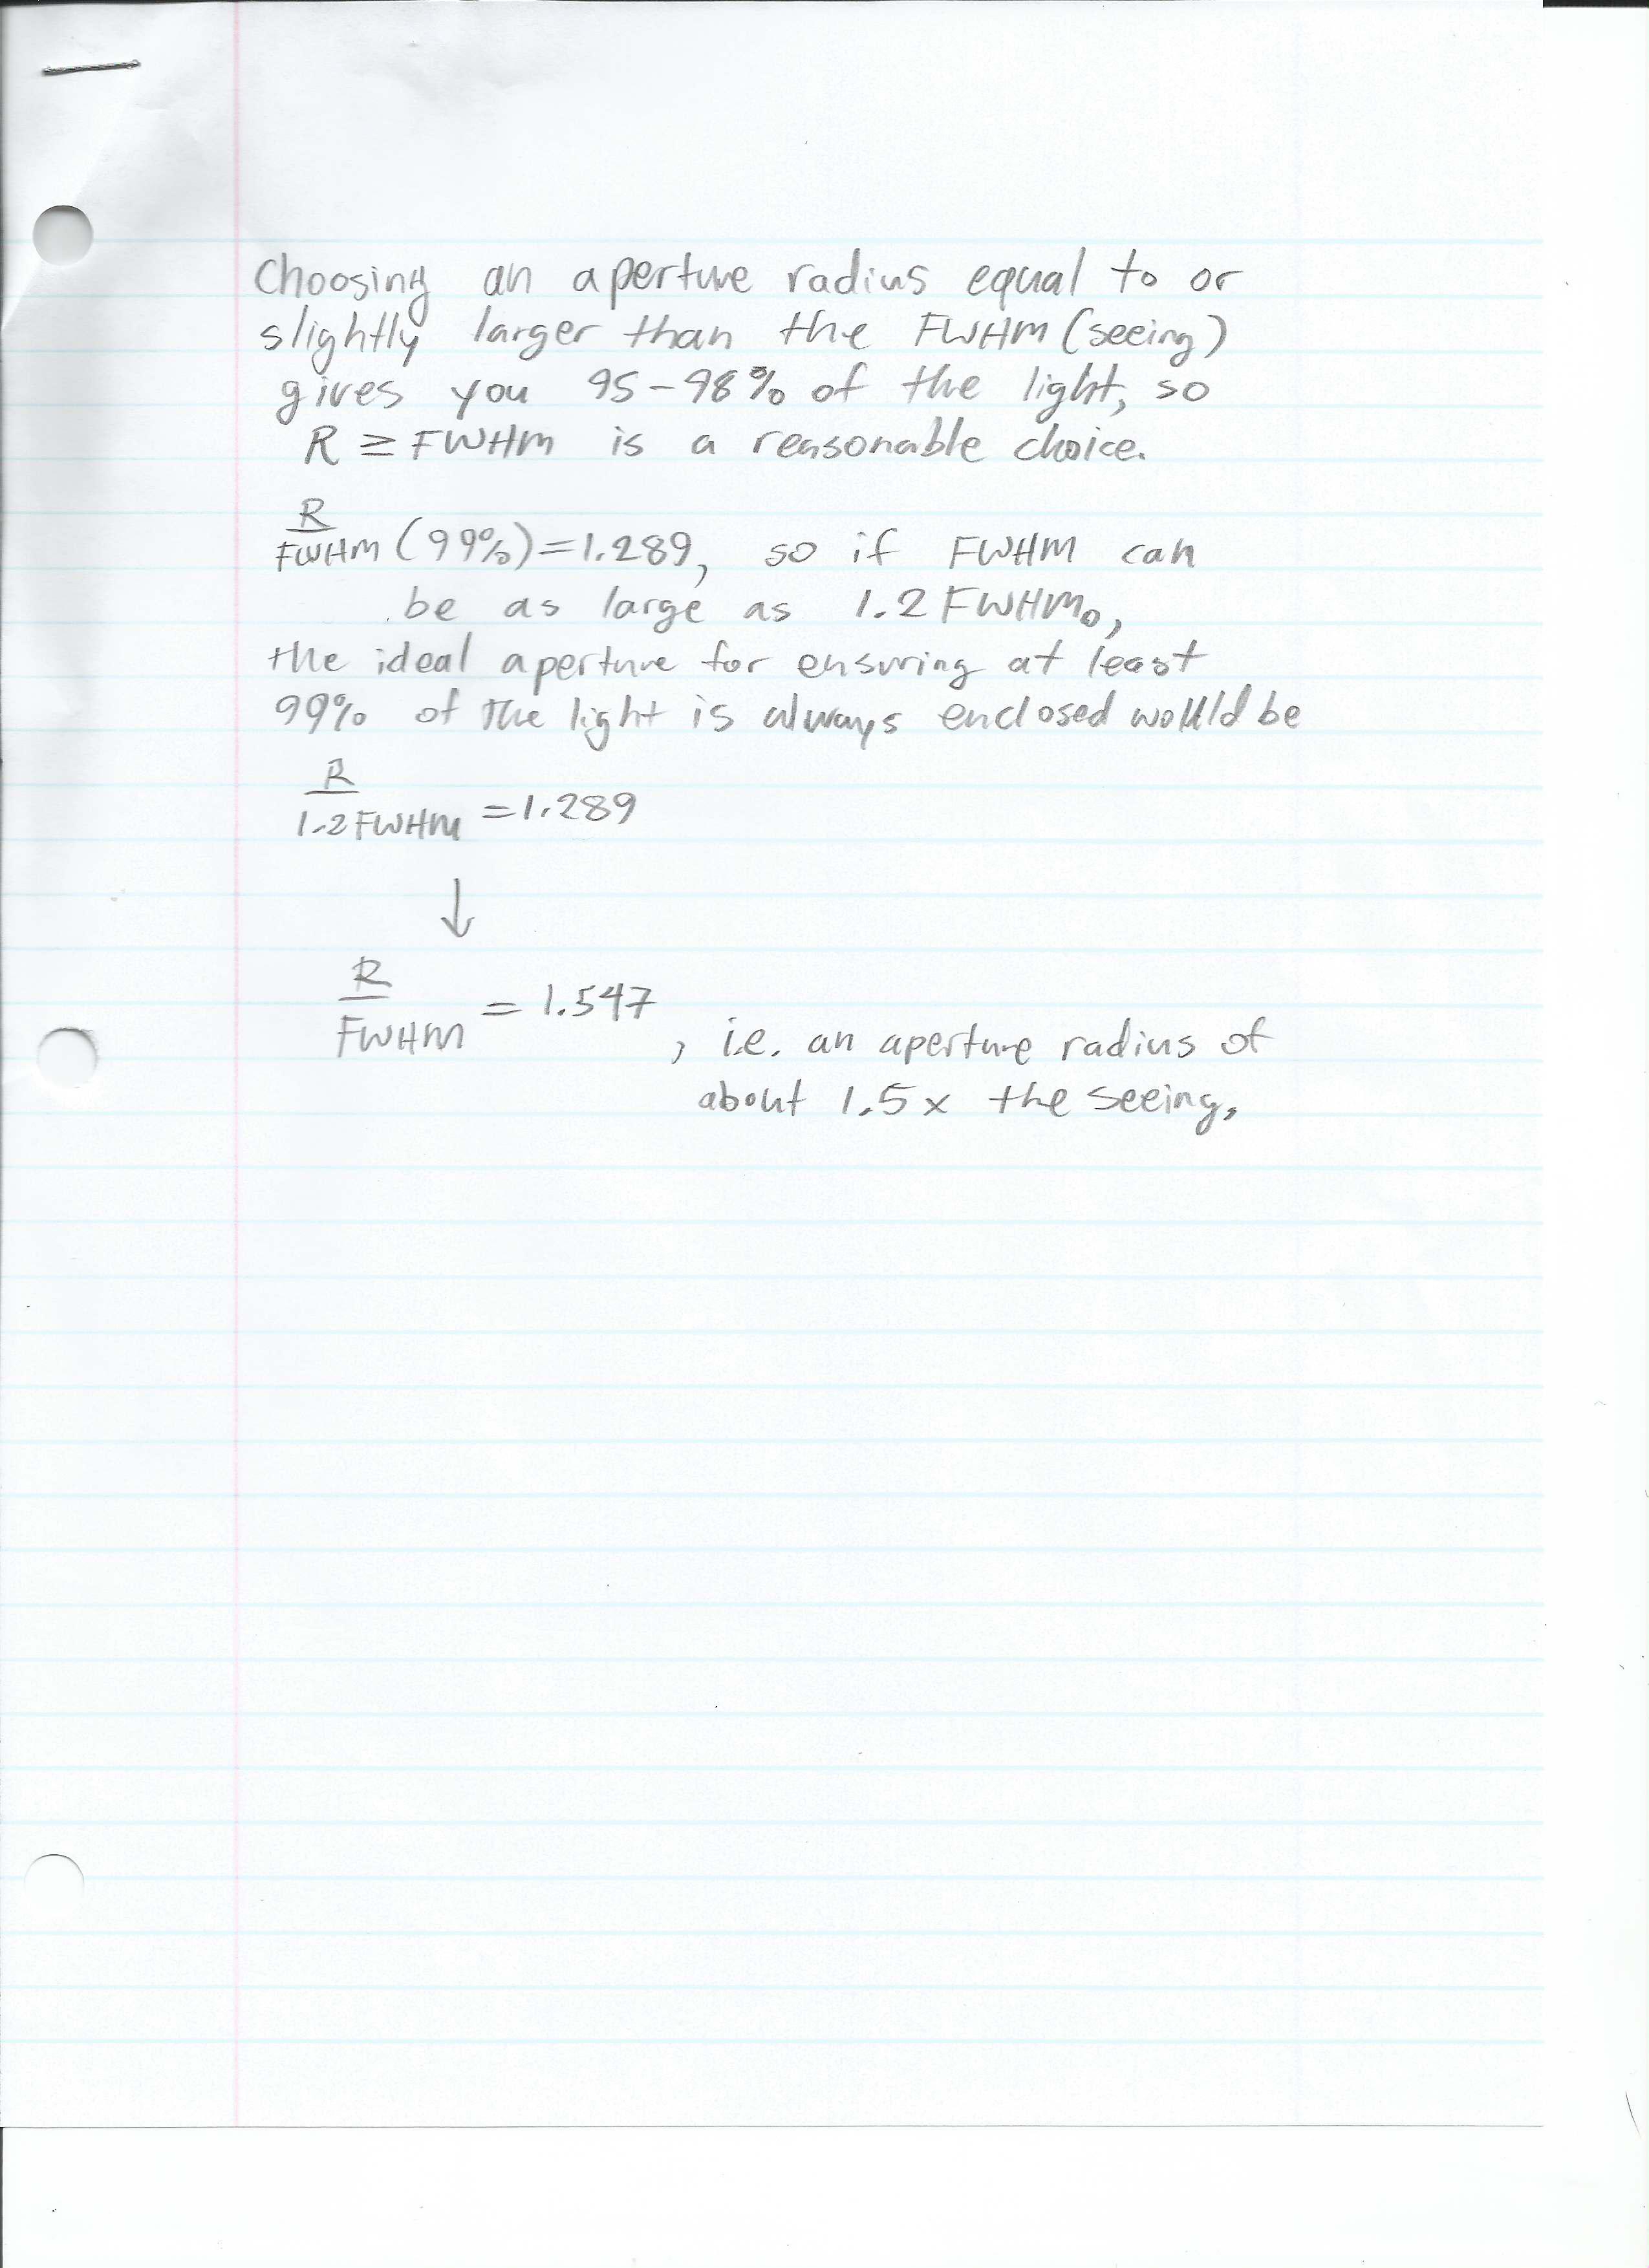 Choosing an aperture radius equal to or
slightly larger than the FWHM (seeing)
gives you 95-98% of the light, so
R ≥ FWHM is a reasonable choice.
R
FWHM (99%) = 1.289, so if FWHM can
be as large as 1.2 FWHM₀,
the ideal aperture for ensuring at least
99% of the light is always enclosed would be
R
1.2 FWHM = 1.289
↓
R
FWHM = 1.547
, i.e. an aperture radius of
about 1.5x the seeing.